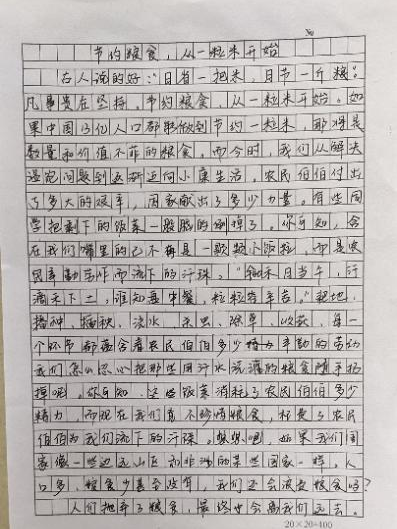 节约粮食，从一粒米开始
古人说的好："日省一把米，日节一斤粮"。
凡事贵在坚持，节约粮食，从一粒米开始。如
果中国13亿人口都能做到节约一粒米，那将是
数量和价值不菲的粮食。而今时，我们从解决
温饱问题到逐渐迈向小康生活，农民伯伯付出
了多大的艰辛，国家献出了多少力量。有些同
学把剩下的饭菜一股脑的倒掉了。你可知，含
在我们嘴里的已不再是一颗颗小饭粒，而是农
民辛勤劳作而流下的汗珠。"锄禾日当午，汗
滴禾下土，谁知盘中餐，粒粒皆辛苦。"耙地、
播种、插秧、浇水、杀虫、除草、收获，每一
个环节都蕴含着农民伯伯多少辛勤的劳动
我们怎么忍心把那些用汗水浇灌的粮食随手扔
掉呢。你可知，这些饭菜消耗了农民伯伯多少
精力，而现在我们真不珍惜粮食，枉费了农民
伯伯为我们流下的汗珠。想想吧，如果我们国
家像一些边远山区和非洲的某些国家一样，人
口多，粮食少甚至没有，我们还会浪费粮食吗？
人们抛弃了粮食，最终也会离我们而去。
20×20=400